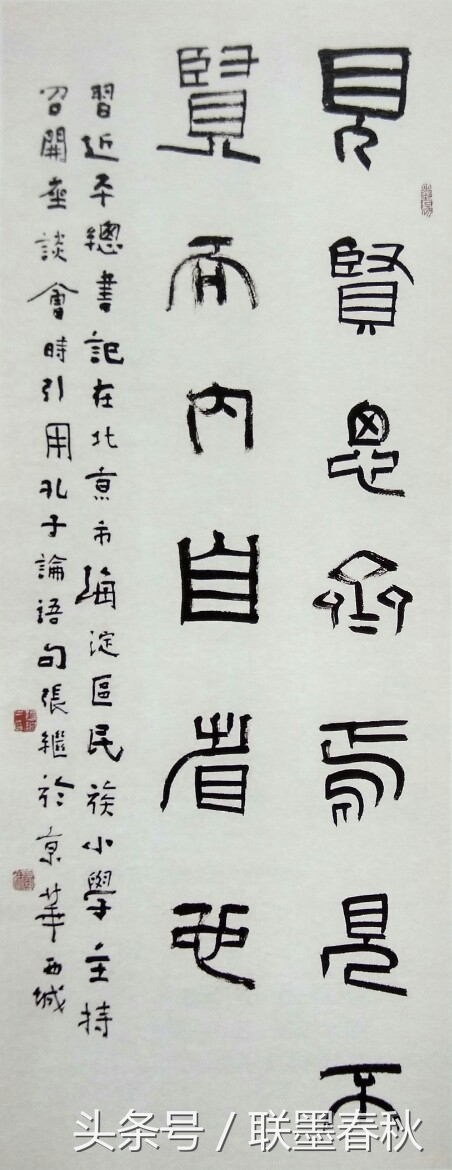 見賢思齊焉見不
賢而內自省也
習近平總書記在北京市海淀區民族小學主持
召開座談會時引用孔子論語句張繼於京華西城
头条号 / 联墨春秋